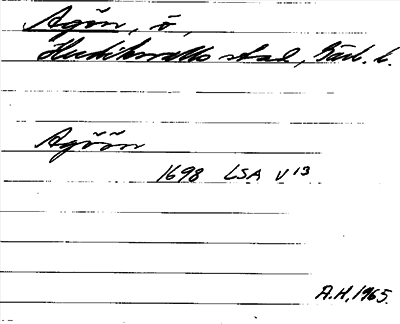 Agön, ö,
Hudiksvalls stad, Gävl. l.
Agöön
1698 LSA V 13
A.H. 1965.